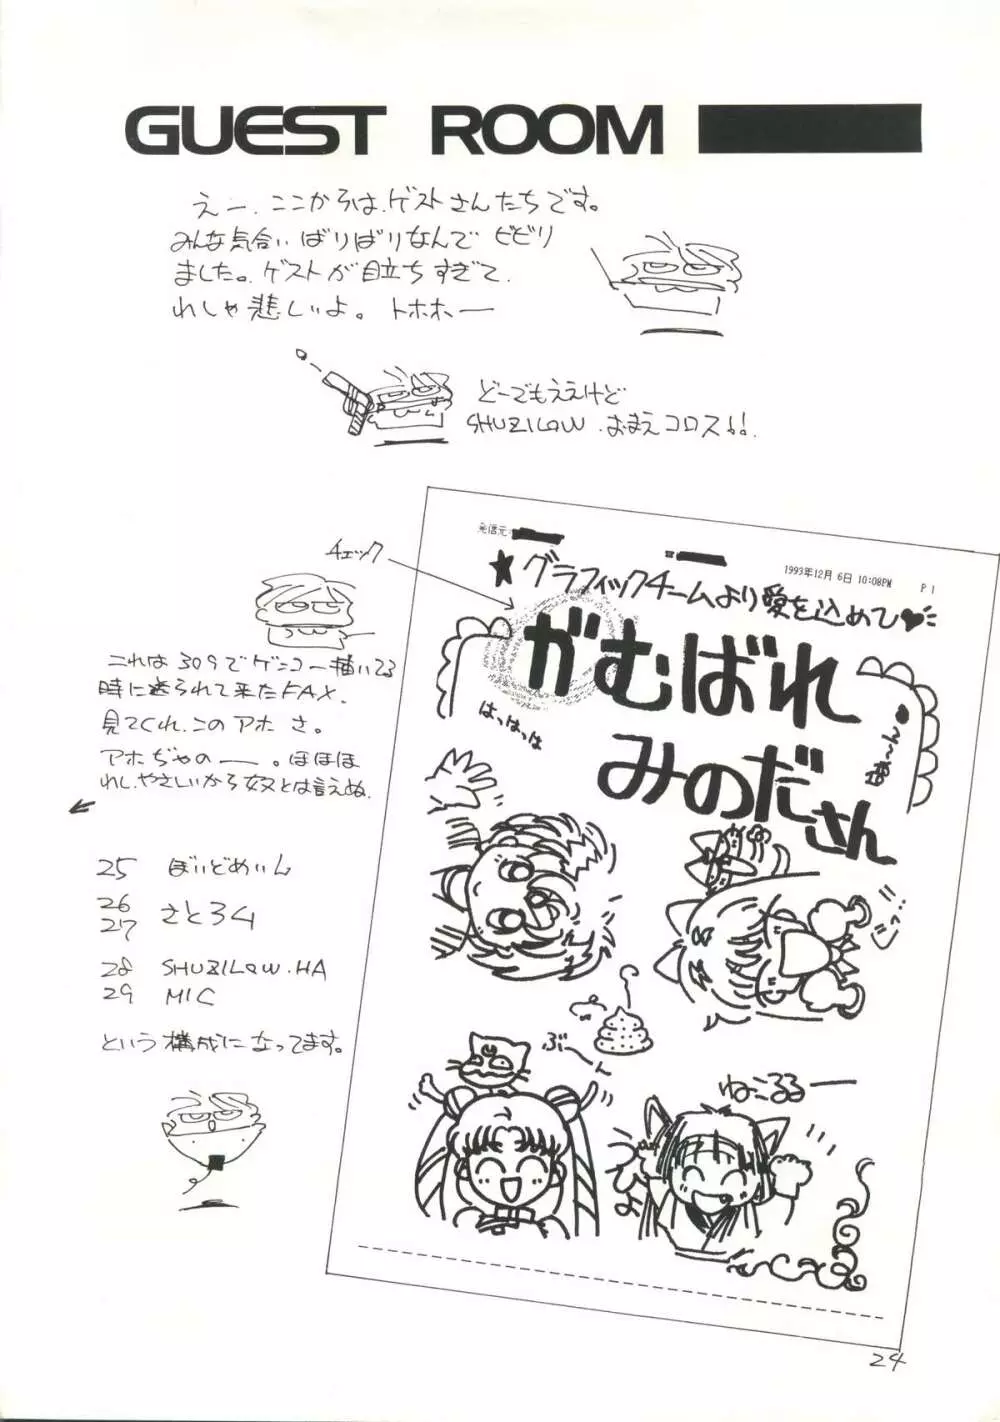 GUEST ROOM
えー、ここからは、ゲストさんたちです。
みんな気合いばりばりなんで ビビり
ました。ゲストが目立ちすぎて、
れしゃ悲しいよ。トホホー
どーでもええけど
SHUZILOW、おまえコロス!!
チェック
これは309でゲンコー描いてる
時に送られて来たFAX.
見てくれ、このアホさ。
アホぢゃのー。ほほほ
れし、やさしいから奴とは言えぬ.
25 ぼいどめいん
26
27 さとろ4
28 SHUZILOW.HA
29 MIC
という構成になってます。
発信元:
1993年12月 6日 10:08PM P1
★グラフィックチームより愛を込めて♥
がむばれ
みのださん
はっはっは
あ〜ん♥
じっ!!
ぶ〜ん
ねこるるー
24